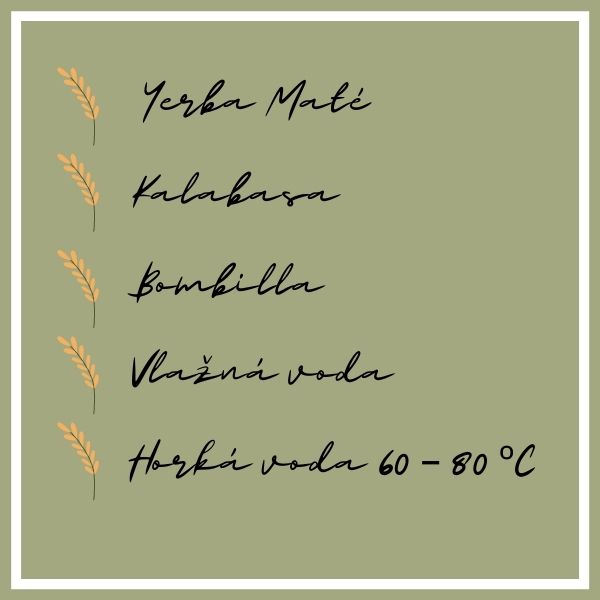 Yerba Maté
Kalabasa
Bombilla
Vlažná voda
Horká voda 60 – 80 °C